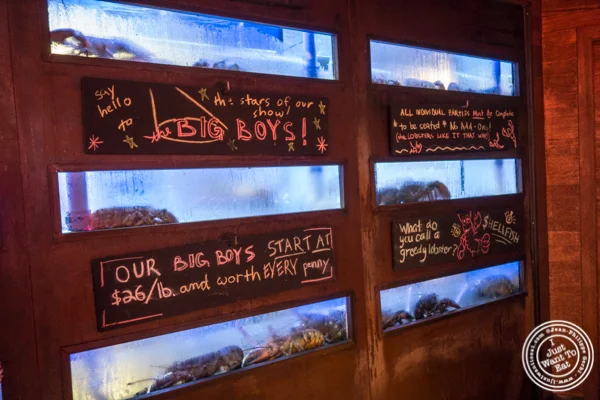 say
hello
to
the stars of our
show
the BIG BOYS!
OUR BIG BOYS START AT
$26/lb. and worth EVERY penny
ALL INDIVIDUAL PARTIES Must Be Complete
to be seated & No Add-Ons!
(the LOBSTERS LIKE IT THAT WAY)
What do
you call a
greedy lobster?
$HELLFISH
I
Just
Want To
Eat